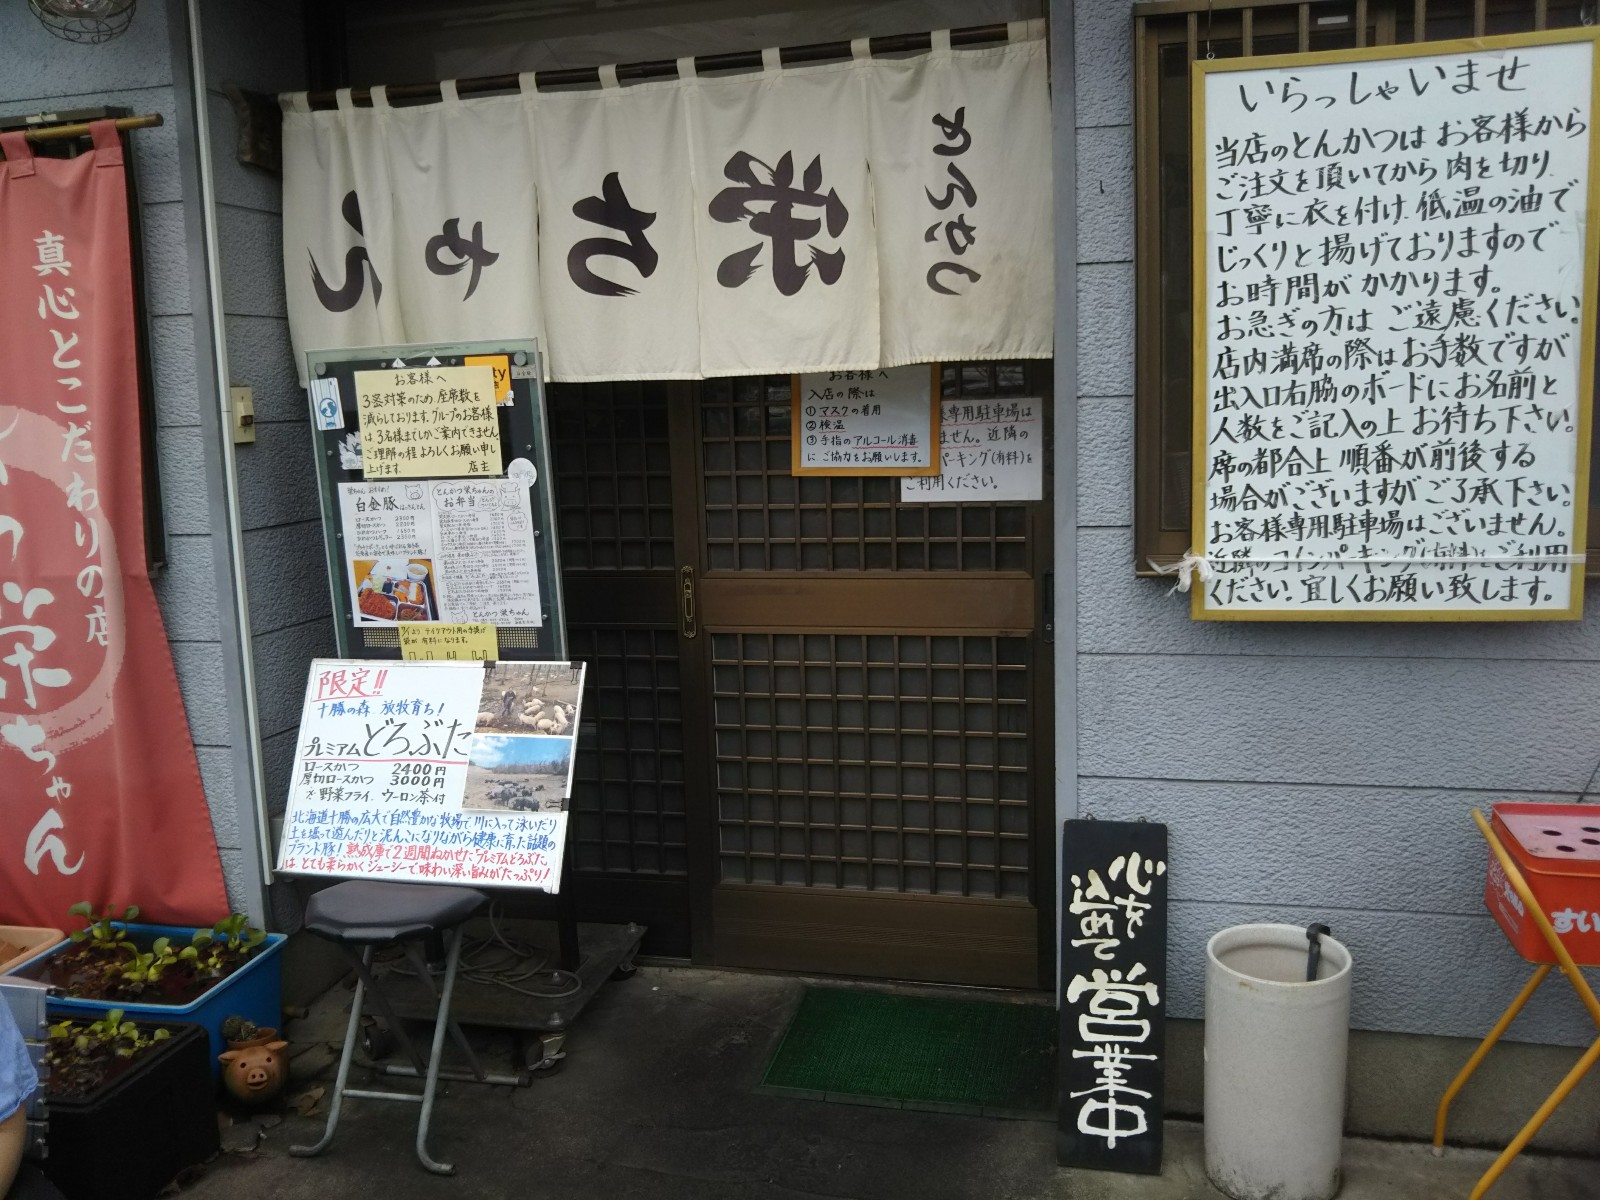 とんかつ
栄ちゃん
真心とこだわりの店
栄ちゃん
お客様へ
3密対策のため、座席数を
減らしております。グループのお客様
は3名様までしかご案内できません。
ご理解の程よろしくお願い申し
上げます。 店主
栄ちゃん おすすめ!
白金豚
とんかつ栄ちゃんの
お弁当
とんかつ 栄ちゃん
より テイクアウト用の手提げ
袋が有料になります。
限定!!
十勝の森 放牧育ち!
プレミアムどろぶた
ロースかつ 2400円
厚切ロースかつ 3000円
※野菜フライ、ウーロン茶付
北海道十勝の広大で自然豊かな牧場で、川に入って泳いだり
土を掘って遊んだりと泥んこになりながら健康に育った話題の
ブランド豚!熟成庫で2週間ねかせた「プレミアムどろぶた」
は とても柔らかくジューシーで味わい深い旨みがたっぷり!
お客様へ
入店の際は
①マスクの着用
②検温
③手指のアルコール消毒
にご協力をお願いします。
専用駐車場は
ません。近隣の
パーキング(有料)を
ご利用ください。
いらっしゃいませ
当店のとんかつは お客様から
ご注文を頂いてから 肉を切り
丁寧に衣を付け 低温の油で
じっくりと揚げておりますので
お時間が かかります。
お急ぎの方は ご遠慮ください。
店内満席の際はお手数ですが
出入口右脇のボードにお名前と
人数をご記入の上 お待ち下さい。
席の都合上 順番が前後する
場合がございますがご了承下さい。
お客様専用駐車場はございません。
近隣のコインパーキング(有料)をご利用
ください。宜しくお願い致します。
心を
込めて
営業中
すい